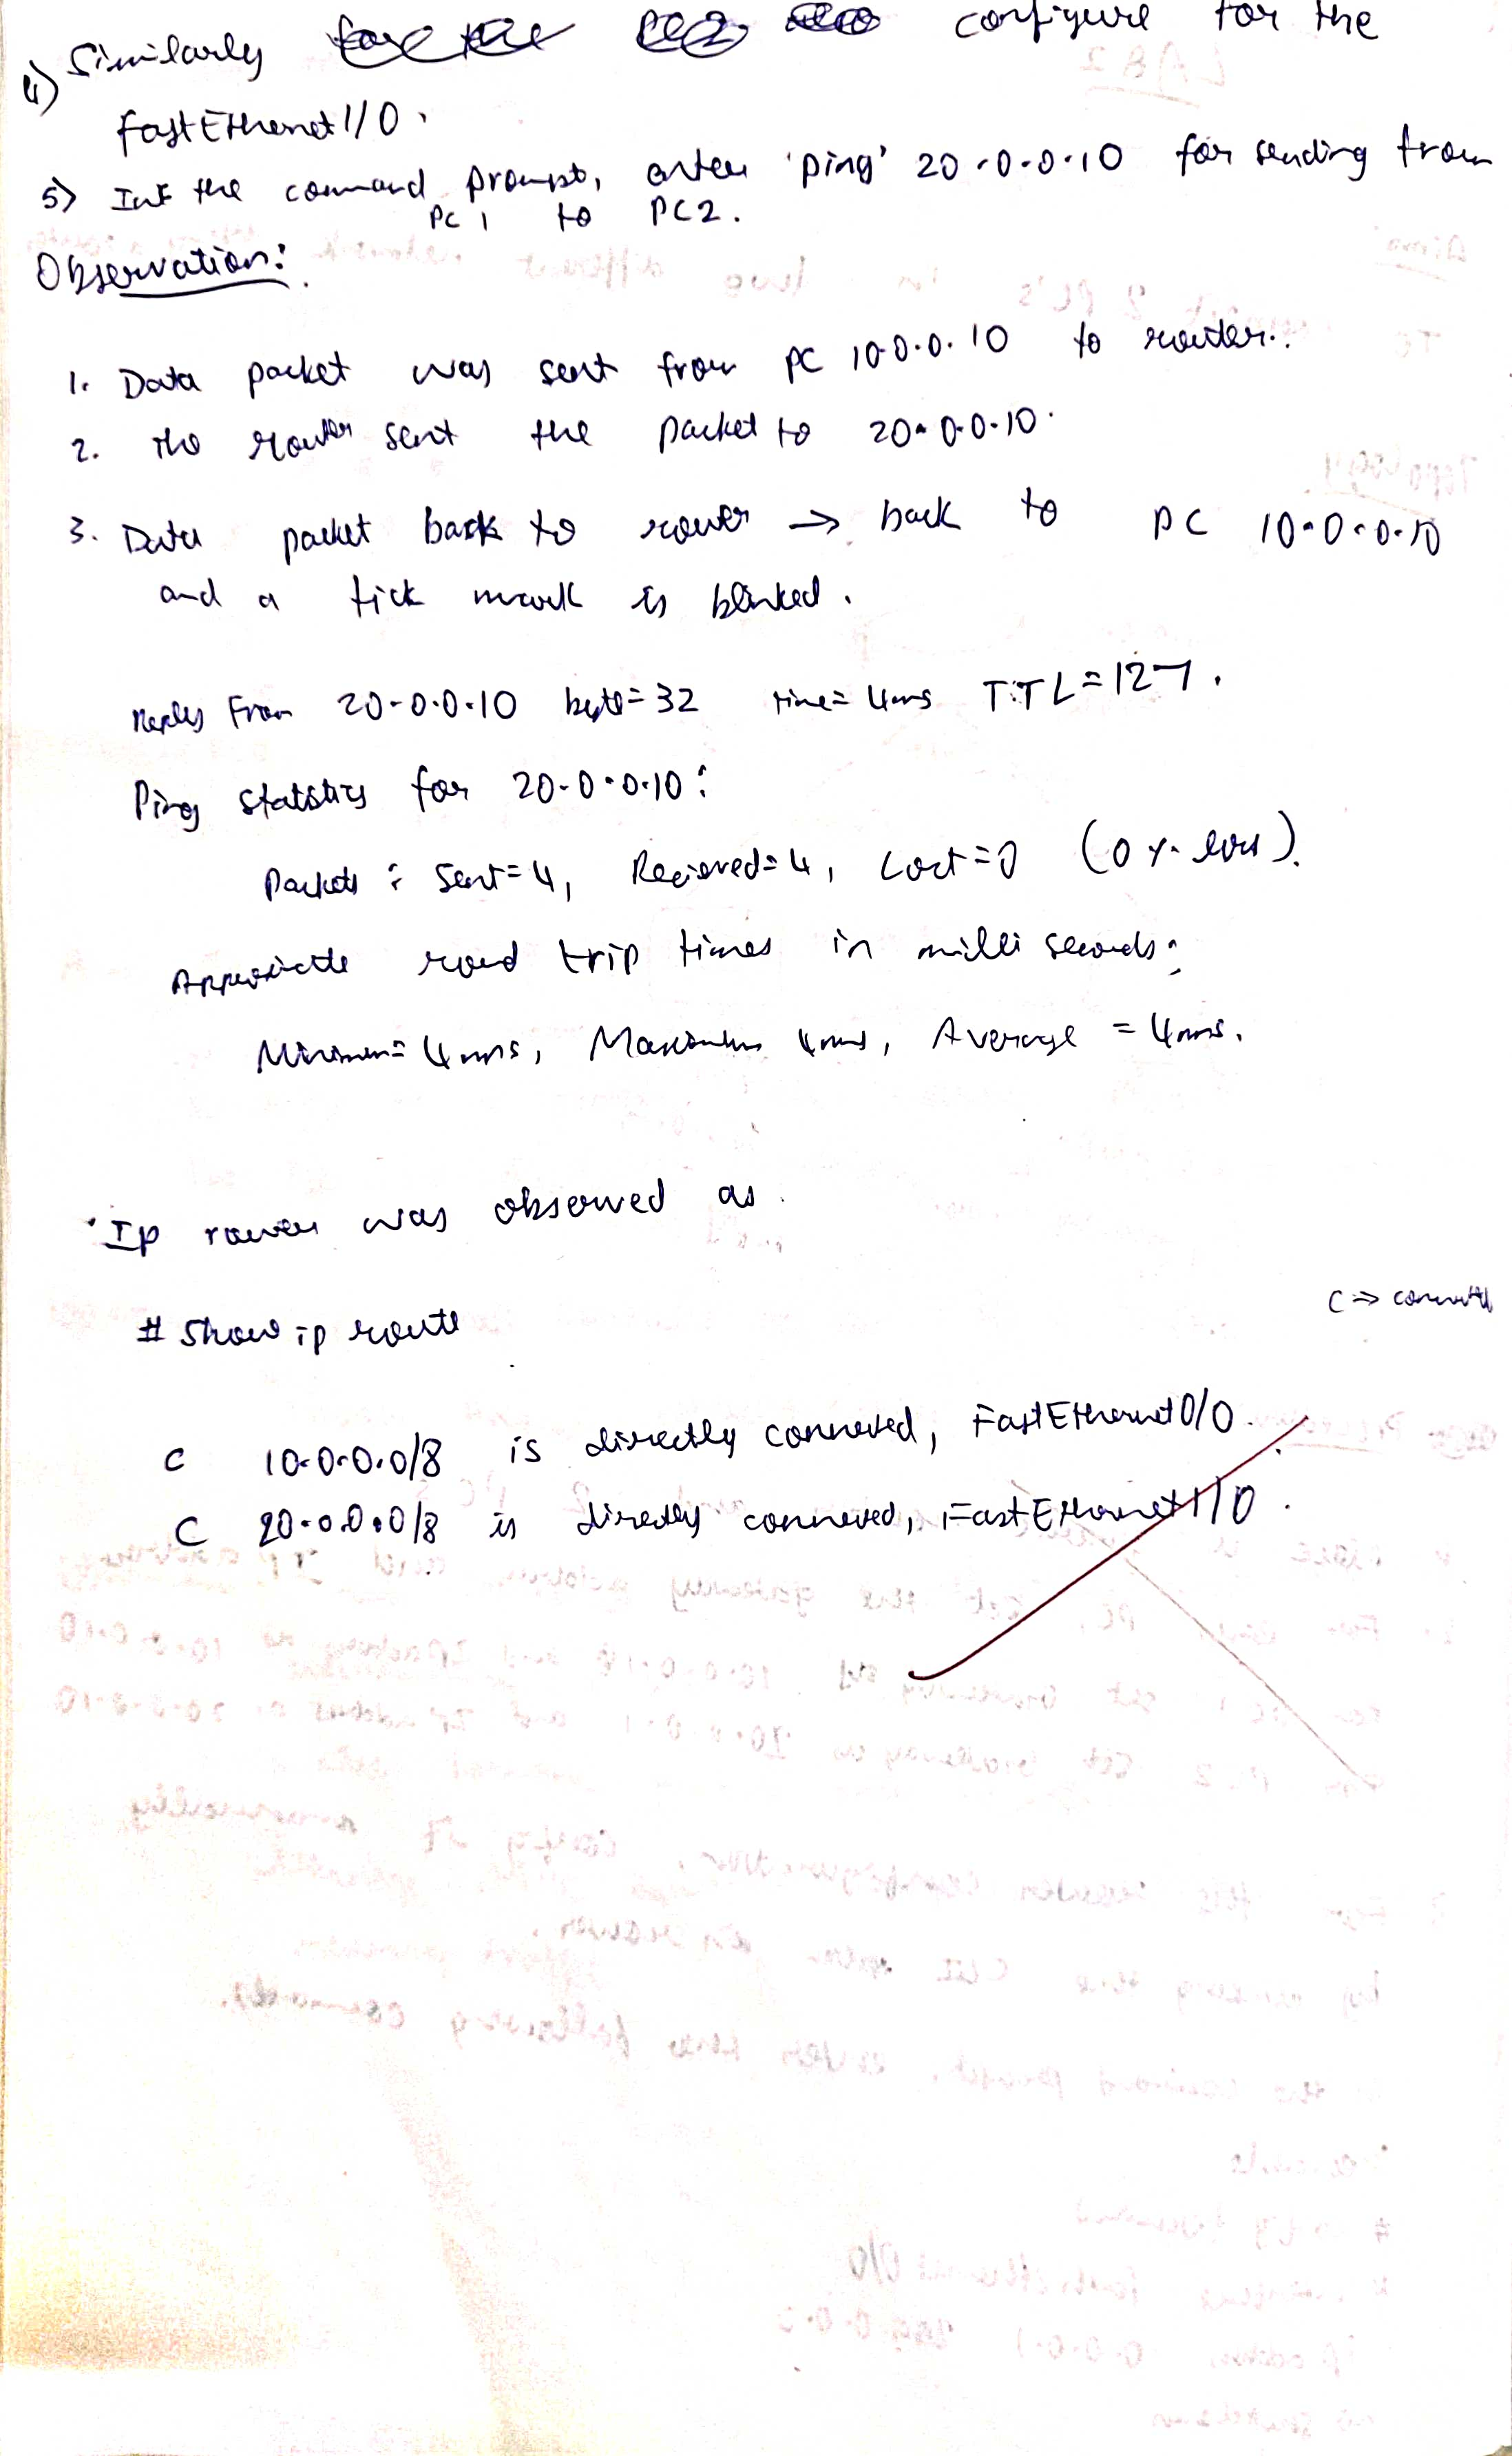 4) Similarly configure for the
fastEthernet 1/0.
5) Int the command prompt, enter 'ping' 20.0.0.10 for sending from
PC1 to PC2.
Observation:
1. Data packet was sent from PC 10.0.0.10 to router.
2. The router sent the packet to 20.0.0.10.
3. Data packet back to router → back to PC 10.0.0.10
and a tick mark is blinked.
Reply From 20.0.0.10 byte=32 time=4ms TTL=127.
Ping statstics for 20.0.0.10:
Packets: Sent=4, Recieved=4, Lost=0 (0% loss).
round trip times in milli seconds:
Minimum=4ms, Maximum 4ms, Average = 4ms.
Ip router was observed as
# Show ip route
C ⇒ connected
C 10.0.0.0/8 is directly connected, FastEthernet 0/0.
C 20.0.0.0/8 is directly connected, FastEthernet 1/0.